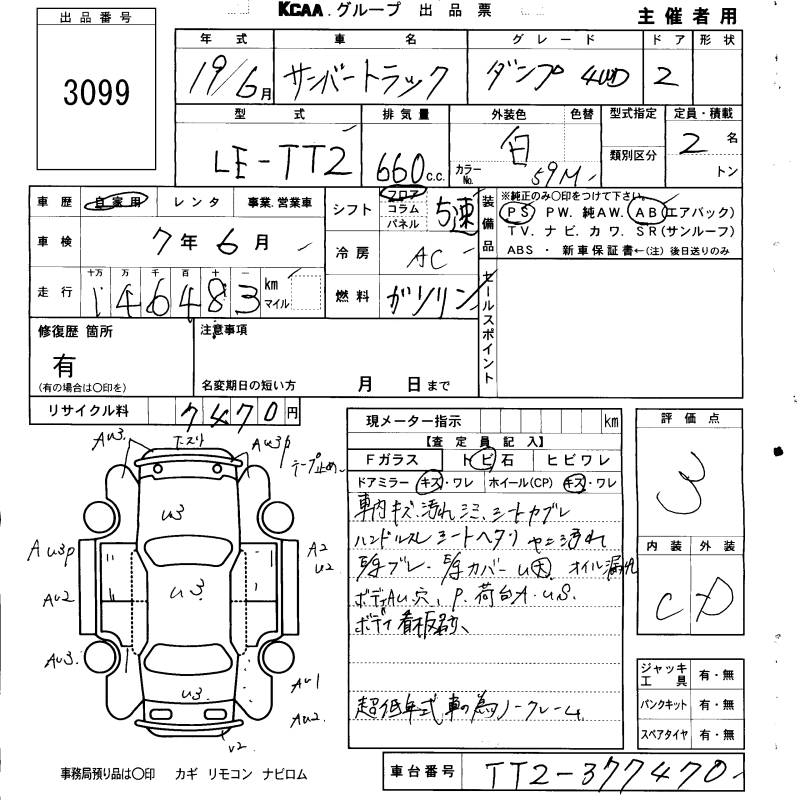 KCAA.グループ 出品票
主催者用
出品番号
3099
年式 車名 グレード ドア 形状
19/6月 サンバートラック ダンプ 4WD 2
型式 排気量 外装色 色替 型式指定 定員・積載
LE-TT2 660c.c. 白 カラーNo. 59M 類別区分 2名
トン
車歴 自家用 レンタ 事業.営業車
車検 7年6月
走行 十万 万 千 百 十 一
146483 km
マイル
シフト フロア コラム パネル 5速
冷房 AC
燃料 ガソリン
装備品
※純正のみ○印をつけて下さい。
PS PW. 純AW. AB(エアバック)
TV. ナビ. カワ. SR(サンルーフ)
ABS ・ 新車保証書←(注) 後日送りのみ
セールスポイント
修復歴 箇所
有
(有の場合は○印を)
注意事項
名変期日の短い方 月 日まで
リサイクル料 7470円
現メーター指示 km
【査定員記入】
Fガラス トビ石 ヒビワレ
ドアミラー キズ・ワレ ホイール(CP) キズ・ワレ
車内キズ.汚れシミ、シートヤブレ
ハンドルスレ シートヘタリ ヤニ汚れ
オイル漏れ
ボディAU穴、P.荷台A.US.
ボディ看板跡、
超低年式車の為ノークレーム
評価点
3
内装 外装
C D
ジャッキ工具 有・無
パンクキット 有・無
スペアタイヤ 有・無
AU3.
AU3P
テープ止め
U3
AU3P
A2
U2
AU2
U3
AU3.
AU1
U3
AU2.
U2
事務局預り品は○印 カギ リモコン ナビロム
車台番号 TT2-377470